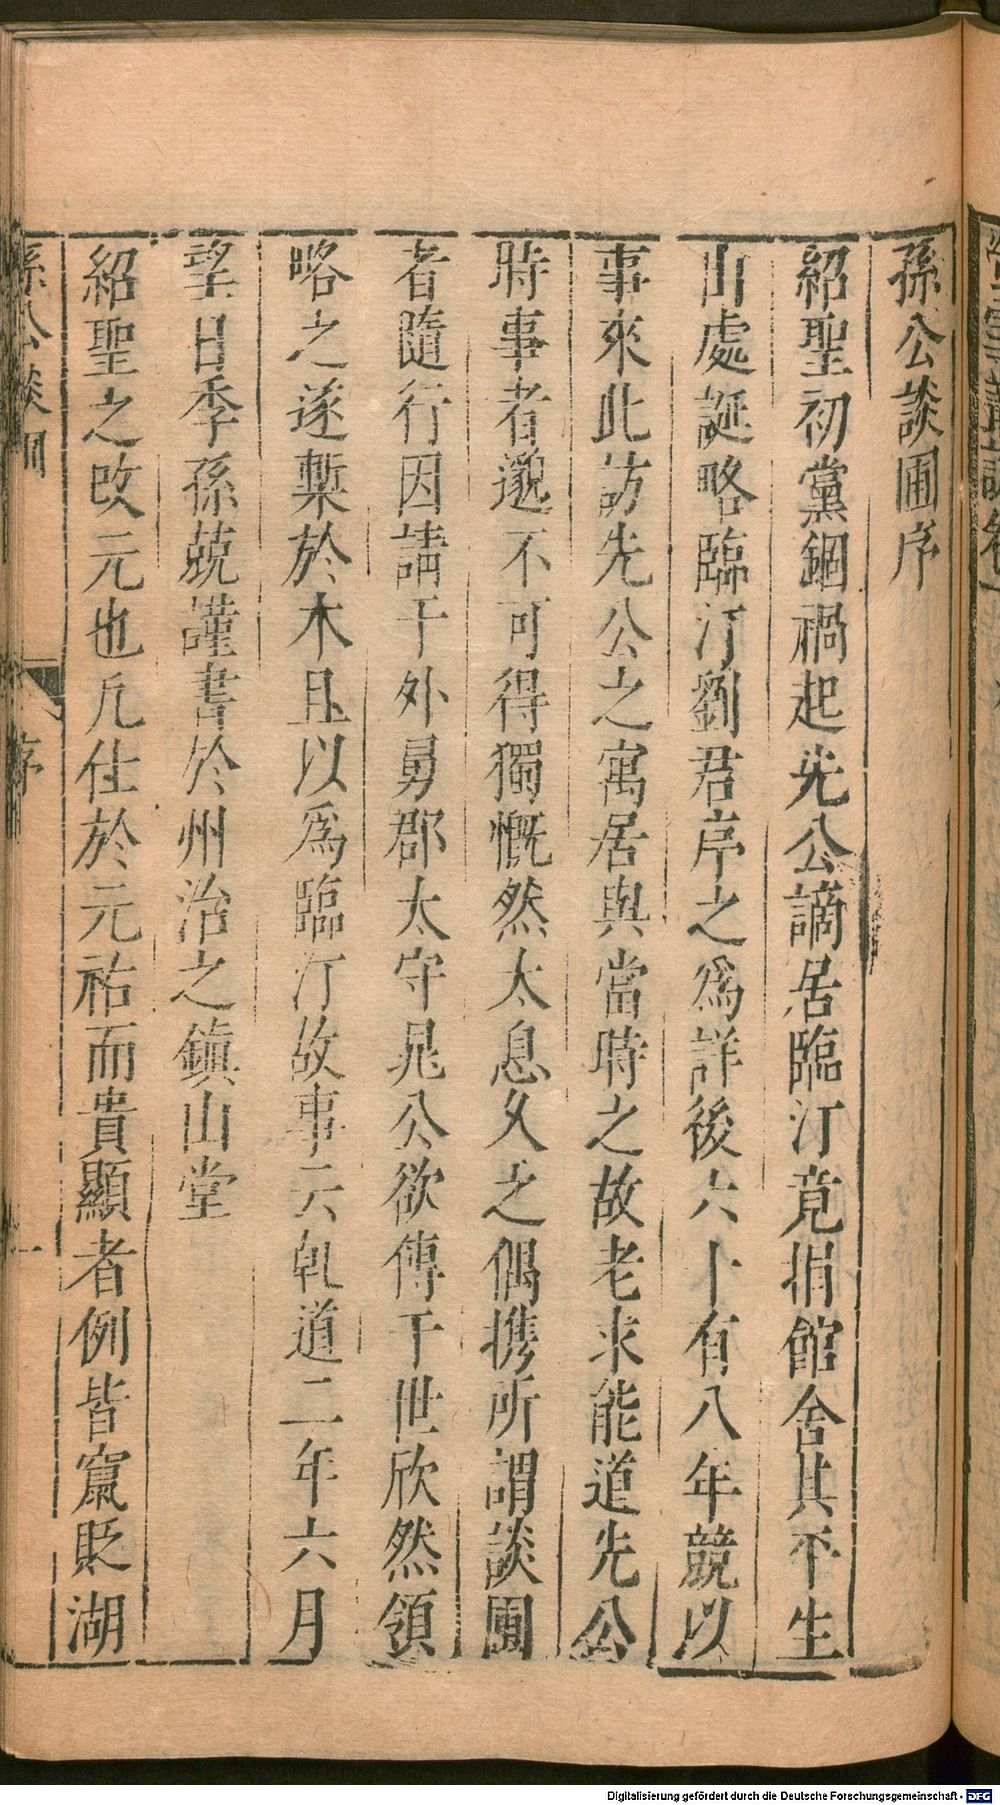 孫公談圃序
紹聖初黨錮禍起先公謫居臨汀竟捐館舍其平生
出處誕略臨汀劉君序之爲詳後六十有八年競以
事來此訪先公之寓居與當時之故老求能道先公
時事者邈不可得獨慨然太息久之偶携所謂談圃
者隨行因請于外舅郡太守晁公欲傳于世欣然領
略之遂槧於木且以爲臨汀故事云乹道二年六月
望日季孫兢謹書於州治之鎮山堂
紹聖之改元也凡仕於元祐而貴顯者例皆竄貶湖
孫公談圃 序 一
Digitalisierung gefördert durch die Deutsche Forschungsgemeinschaft - DFG